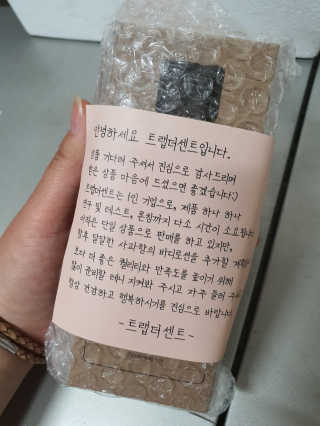 안녕하세요 트랩더센트입니다.
상품 기다려 주셔서 진심으로 감사드리며
받은 상품 마음에 드셨으면 좋겠습니다:)
트랩더센트는 1인 기업으로, 제품 하나 하나
연구 및 테스트, 혼합까지 다소 시간이 소요됩니다
아직은 단일 상품으로 판매를 하고 있지만,
향후 달달한 사과향의 바디로션을 추가할 계획
보다 더 좋은 퀄리티와 만족도를 높이기 위해
많이 준비할 테니 지켜봐 주시고 자주 들러 주
항상 건강하고 행복하시기를 진심으로 바랍니다.
-트랩더센트-